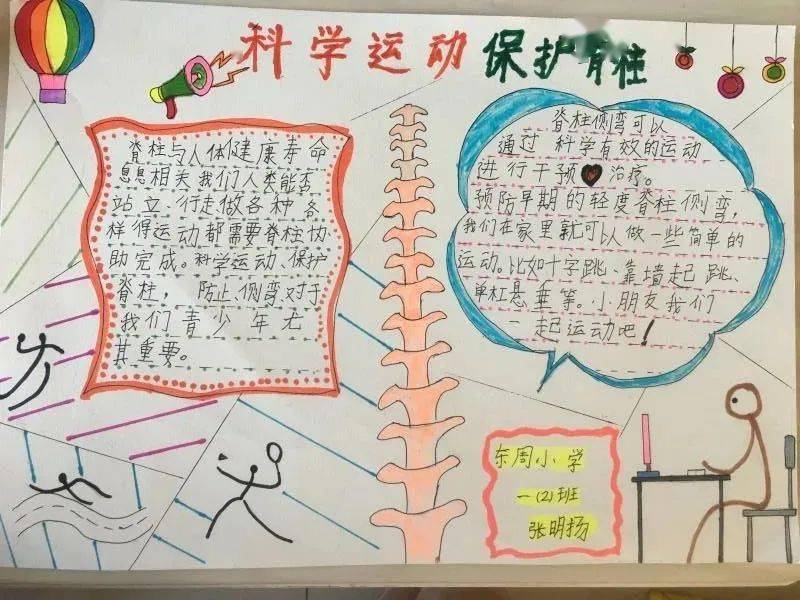 科学运动 保护脊柱
脊柱与人体健康寿命
息息相关我们人类能否
站立、行走做各种各
样得运动都需要脊柱协
助完成。科学运动、保护
脊柱，防止、侧弯对于
我们青少年尤
其重要。
脊柱侧弯可以
通过 科学有效的运动
进行干预 治疗。
预防早期的轻度脊柱侧弯，
我们在家里就可以做一些简单的
运动。比如十字跳、靠墙起跳、
单杠悬垂等。小朋友我们
一起运动吧！
东周小学
一(2)班
张明扬